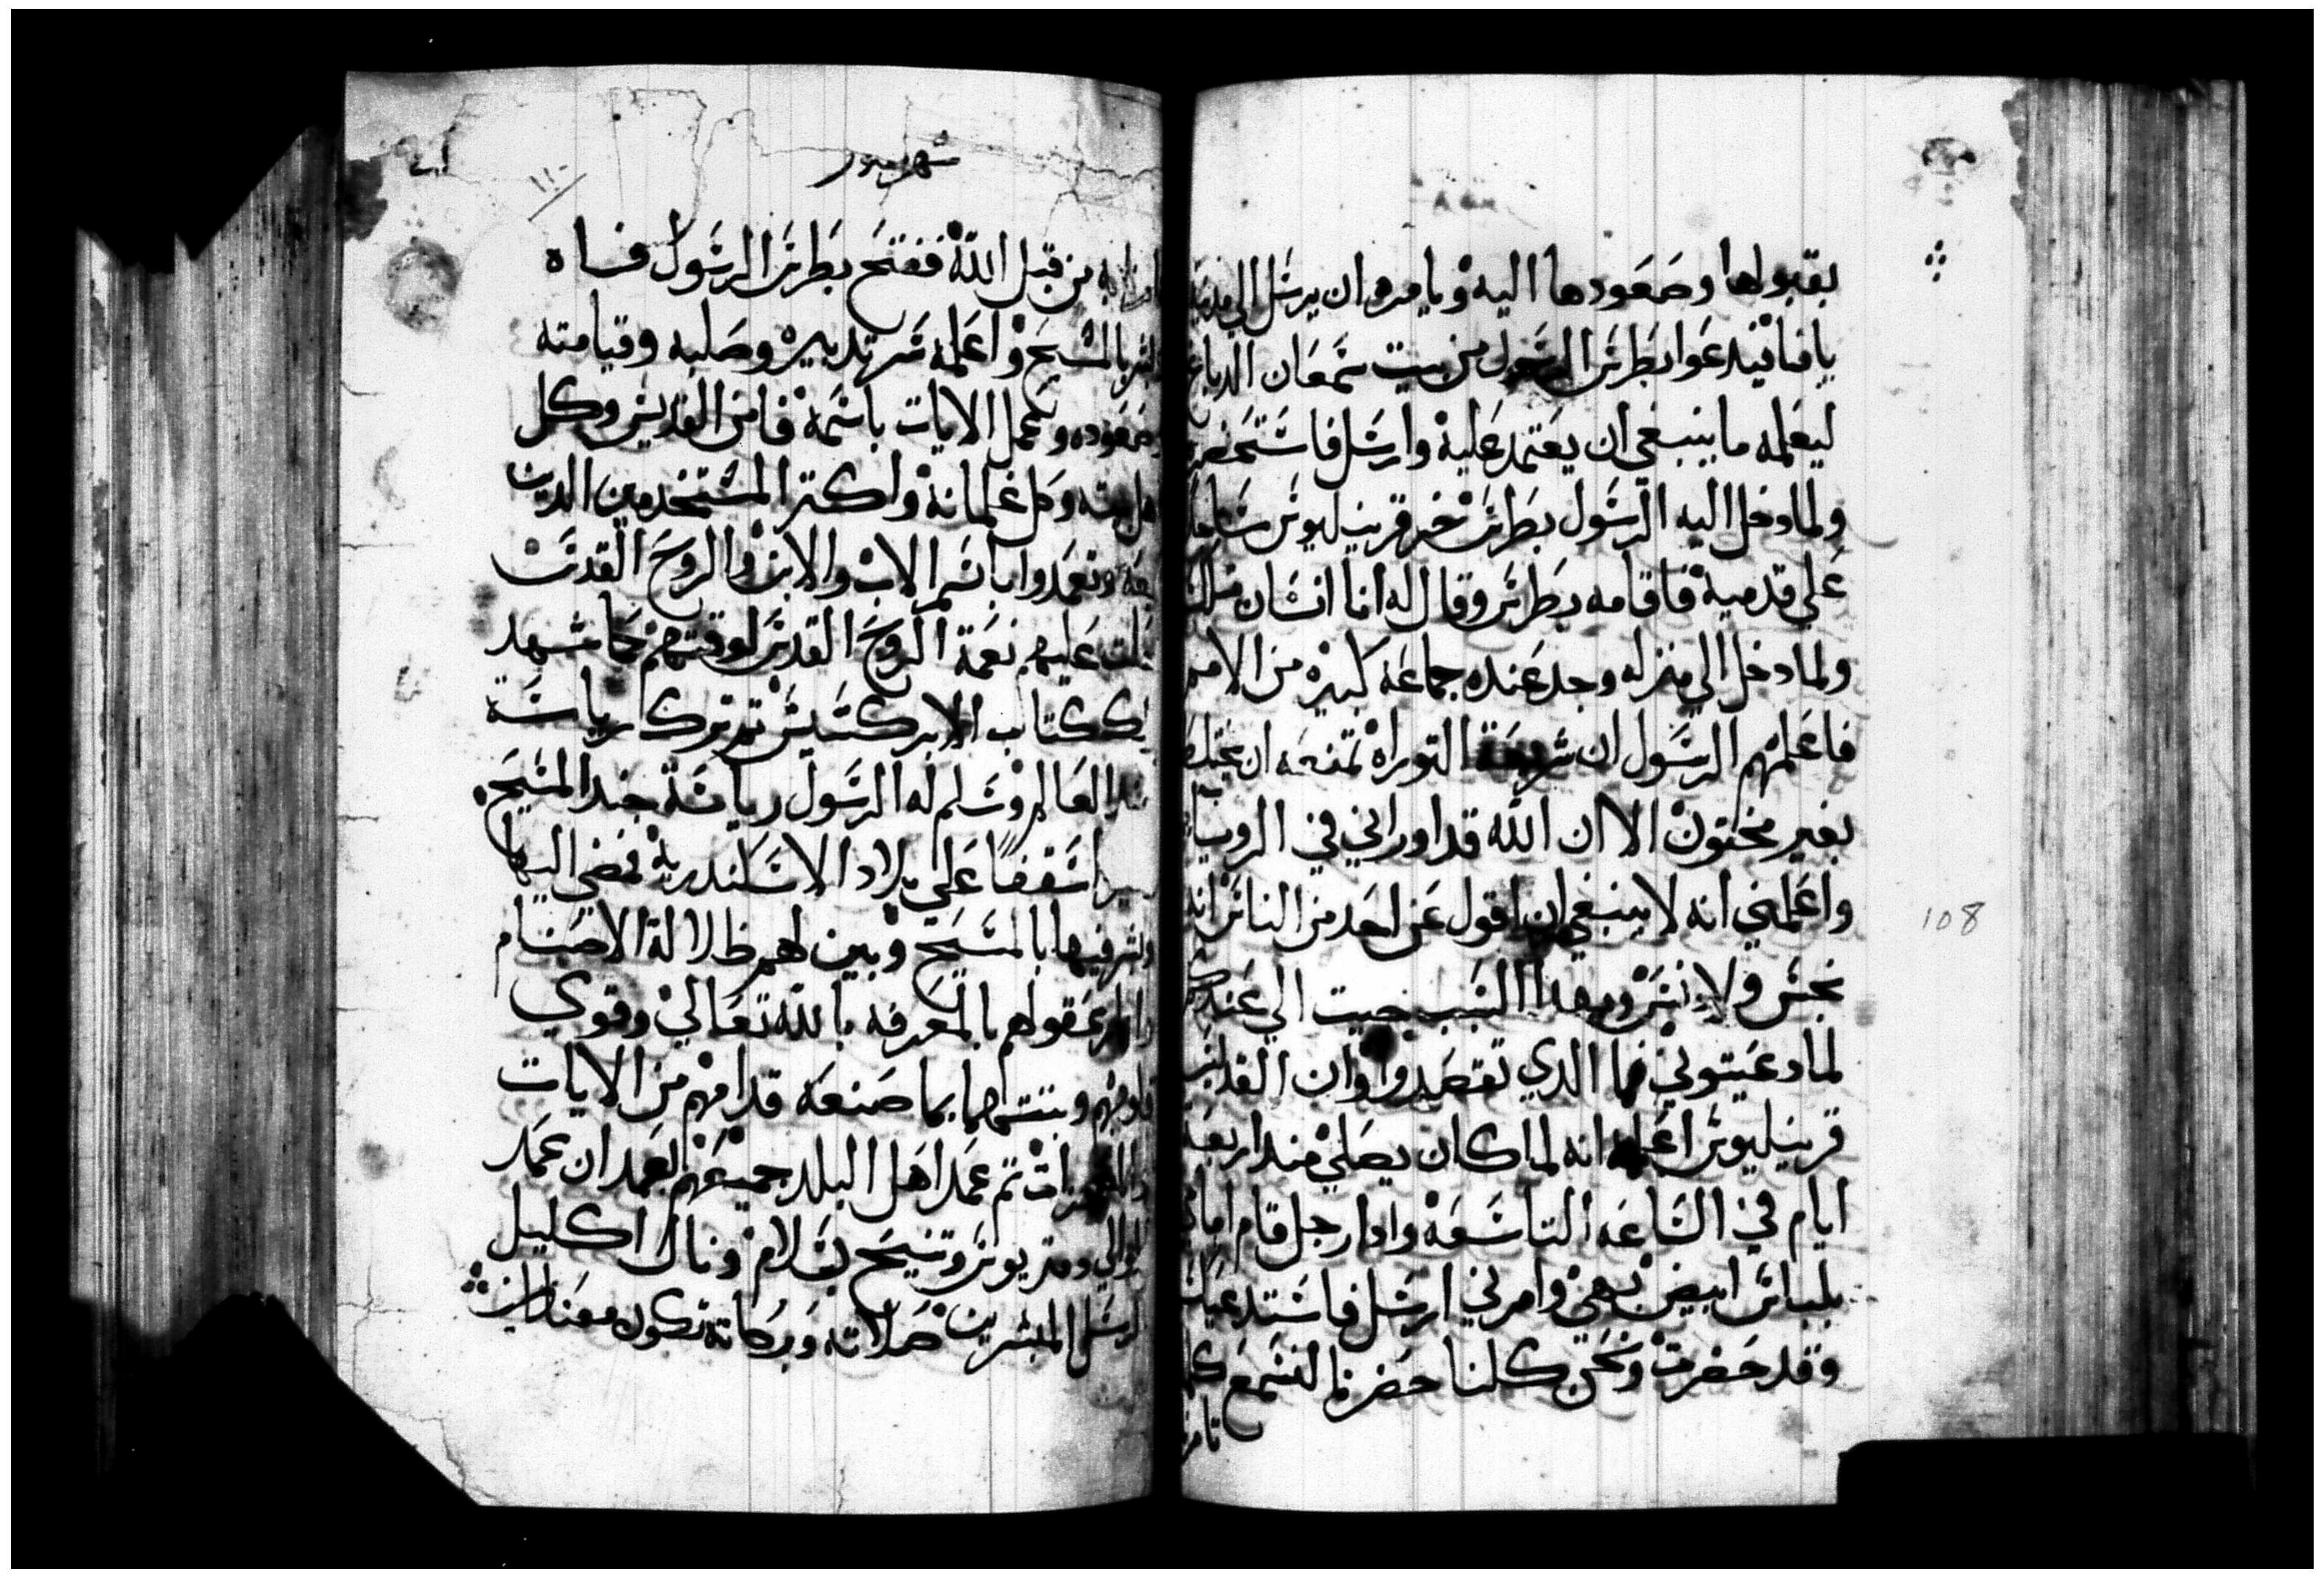 بقبولها وصعودها اليه ويامره ان يرسل الي مدينة
يافا فيدعوا بطرس الرسول من بيت سمعان الدباغ
ليعلمه ما ينبغي ان يعتمد عليه وارسل فاستحضره
ولما دخل اليه الرسول بطرس خر قرينليوس ساجدا
علي قدميه فاقامه بطرس وقال له انا انسان مثلك
ولما دخل الي منزله وجد عنده جماعة كبيره من الامم
فاعلمهم الرسول ان شريعة التوراه تمنعه ان يختلط
بغير مختون الا ان الله قد اوراني في الرويا
واعلمني انه لا ينبغي ان اقول عن احد من الناس انه
نجس ولا دنس وبهدا السبب جيت الي عندكم
لما دعيتوني فما الدي تقصدوا وان القديس
قرينليوس اعلمه انه لما كان يصلي مند اربعة
ايام في الساعه التاسعة وادا رجل قام امامي
بلباس ابيض بهي وامرني ارسل فاستدعيك
وقد حضرت ونحن كلنا حضرنا لنسمع كلما
تامر
108
شهر هتور
١١٠
به من قبل الله ففتح بطرس الرسول فساه
بالمسيح واعلمه سر تدبيره وصلبه وقيامته
وصعوده وعمل الايات باسمه فامن القديس وكل
اهل بيته وكل غلمانه واكتر المستخدمين الدين
معه وتعمدوا باسم الاب والابن والروح القدس
فحلت عليهم نعمة الروح القدس لوقتهم كما شهد
كتاب الابركسيس تم ترك رياسة
جند العالم وسلم له الرسول رياسة جند المسيح
اسقفا علي بلاد الاسكندريه فمضي اليها
وبشر فيها بالمسيح وبين لهم ظلالة الاصنام
وانار عقولهم بالمعرفه بالله تعالي وقوي
قلوبهم وبتتها بما صنعه قدامهم من الايات
والمعجزات تم عمد اهل البلد جميعهم بعد ان عمد
الوالي دمتريوس وتنيح بسلام ونال اكليل
الرسل المبشرين صلاته وبركاته تكون معنا امين